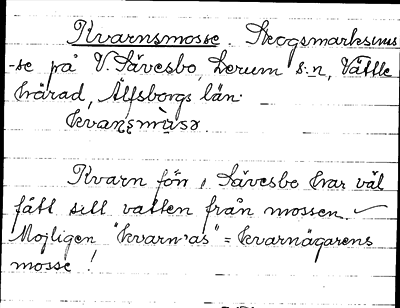 Kvarnsmosse. Skogsmarksmos
-se på V. Sävesbo, Lerum s:n, Vättle
härad, Älfsborgs län.
kvaɳʂmùsə
Kvarn för i Sävesbo har väl
fått sitt vatten från mossen.
Mojligen "kvarn'as" = kvarnägarens
mosse!